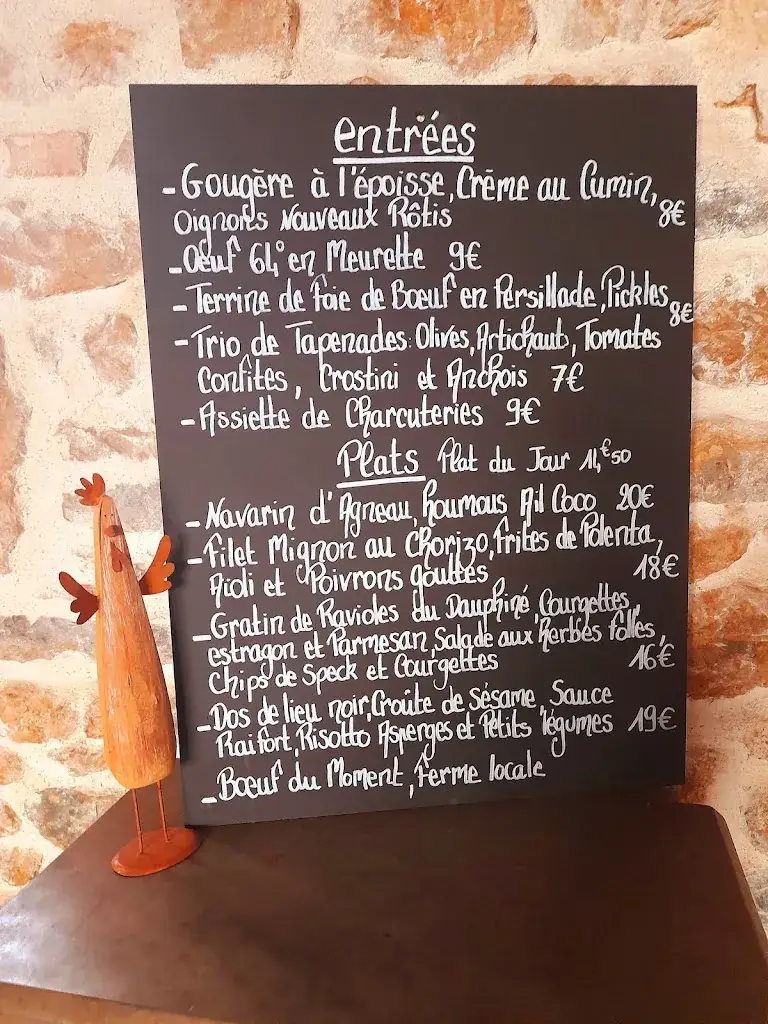 entrées
- Gougère à l'époisse, Crème au Cumin,
Oignons Nouveaux Rôtis 8€
- Oeuf 64° en Meurette 9€
- Terrine de Foie de Bœuf en Persillade, Pickles 8€
- Trio de Tapenades: Olives, Artichaut, Tomates
Confites, Crostini et Anchois 7€
- Assiette de Charcuteries 9€
Plats Plat du Jour 11,€50
- Navarin d'Agneau, houmous Ail Coco 20€
- Filet Mignon au Chorizo, Frites de Polenta,
Aïoli et Poivrons gouttes 18€
- Gratin de Ravioles du Dauphiné, Courgettes,
estragon et Parmesan, Salade aux herbes folles,
Chips de Speck et Courgettes 16€
- Dos de lieu noir, Croûte de Sésame, Sauce
Raifort, Risotto Asperges et Petits légumes 19€
- Bœuf du Moment, Ferme locale